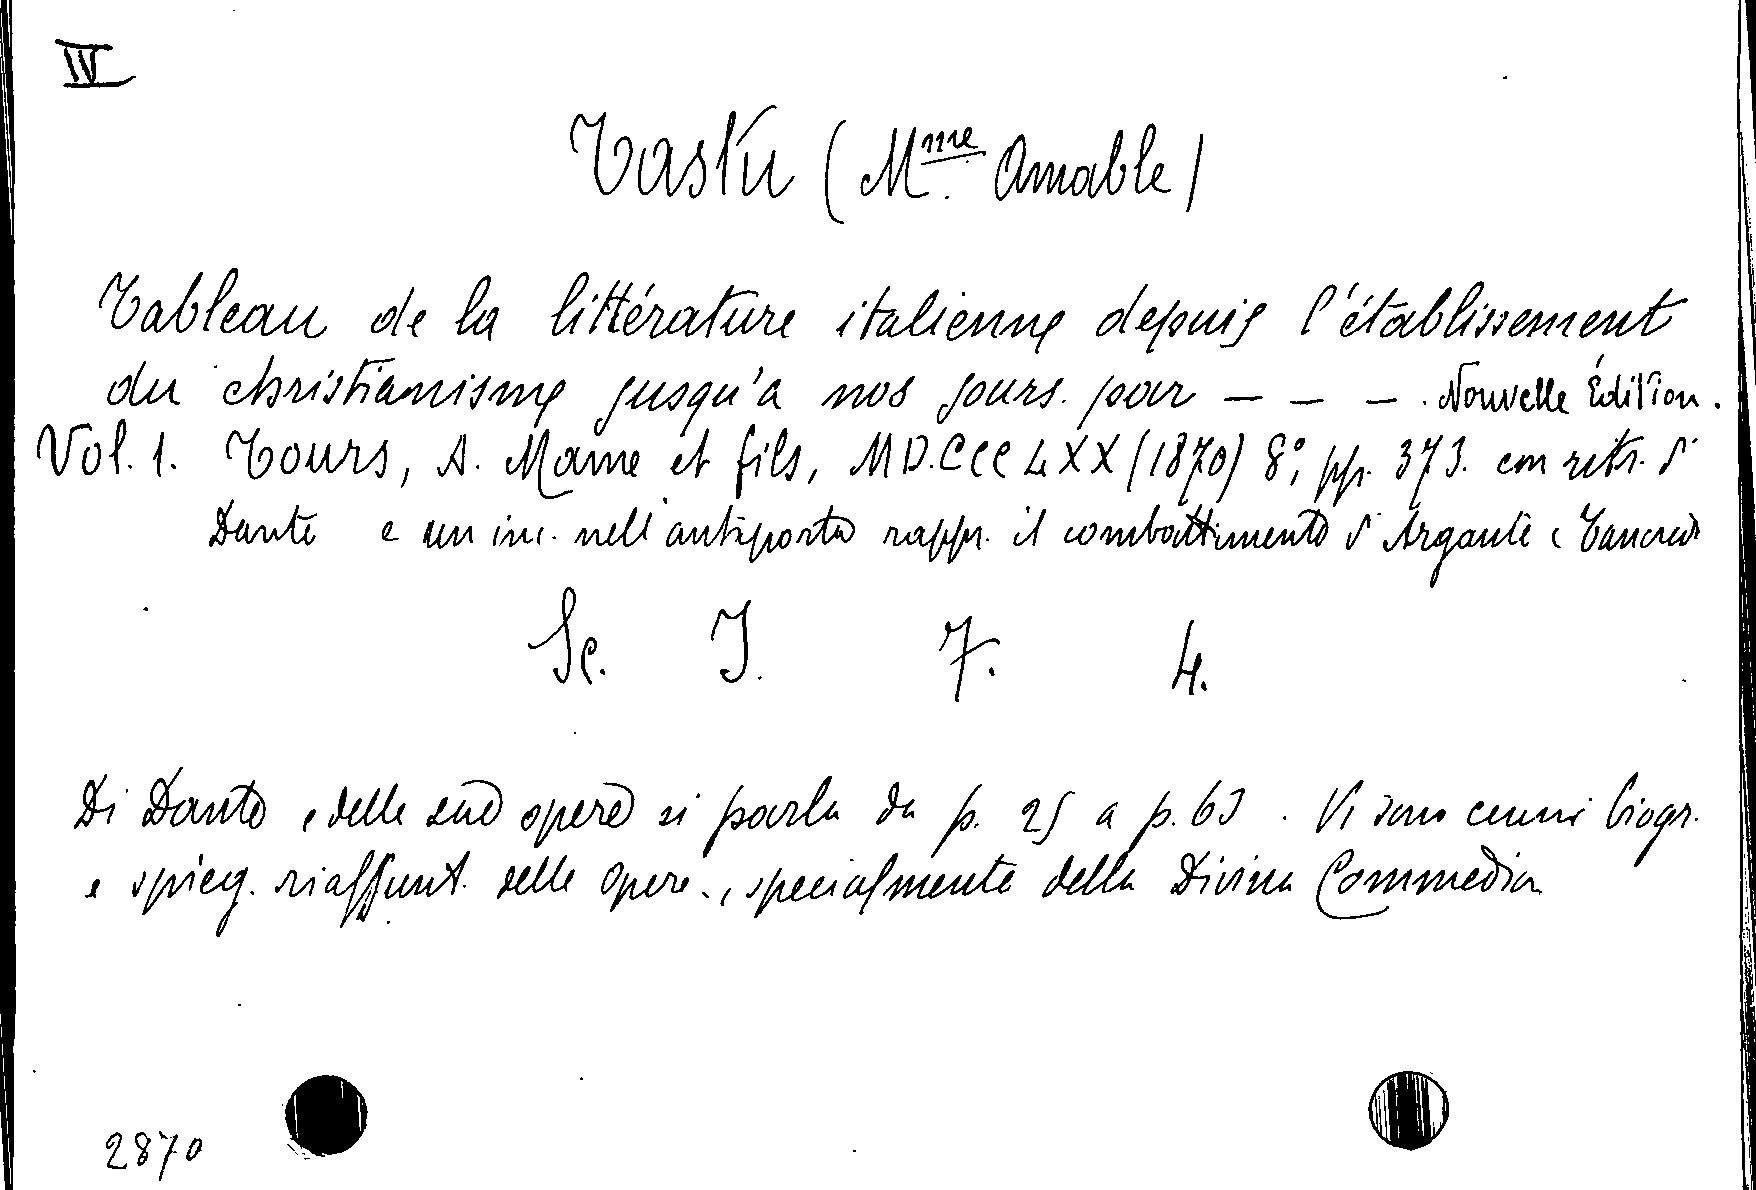 IV
Tastu (Mme. Amable)
Tableau de la littérature italienne depuis l'établissement
du christianisme jusqu'à nos jours. par – – – . Nouvelle Édition.
Vol. 1. Tours, A. Mame et fils, MD.CCCLXX (1870) 8°, pp. 373. con ritr. di
Dante e un inc. nell'antiporta rappr. il combattimento di Argante e Tancredi
Sc. I. 7. 4.
Di Dante e delle sue opere si parla da p. 25 a p. 63. Vi sono cenni biogr.
e spieg. riassunt. delle opere, specialmente della Divina Commedia
2870